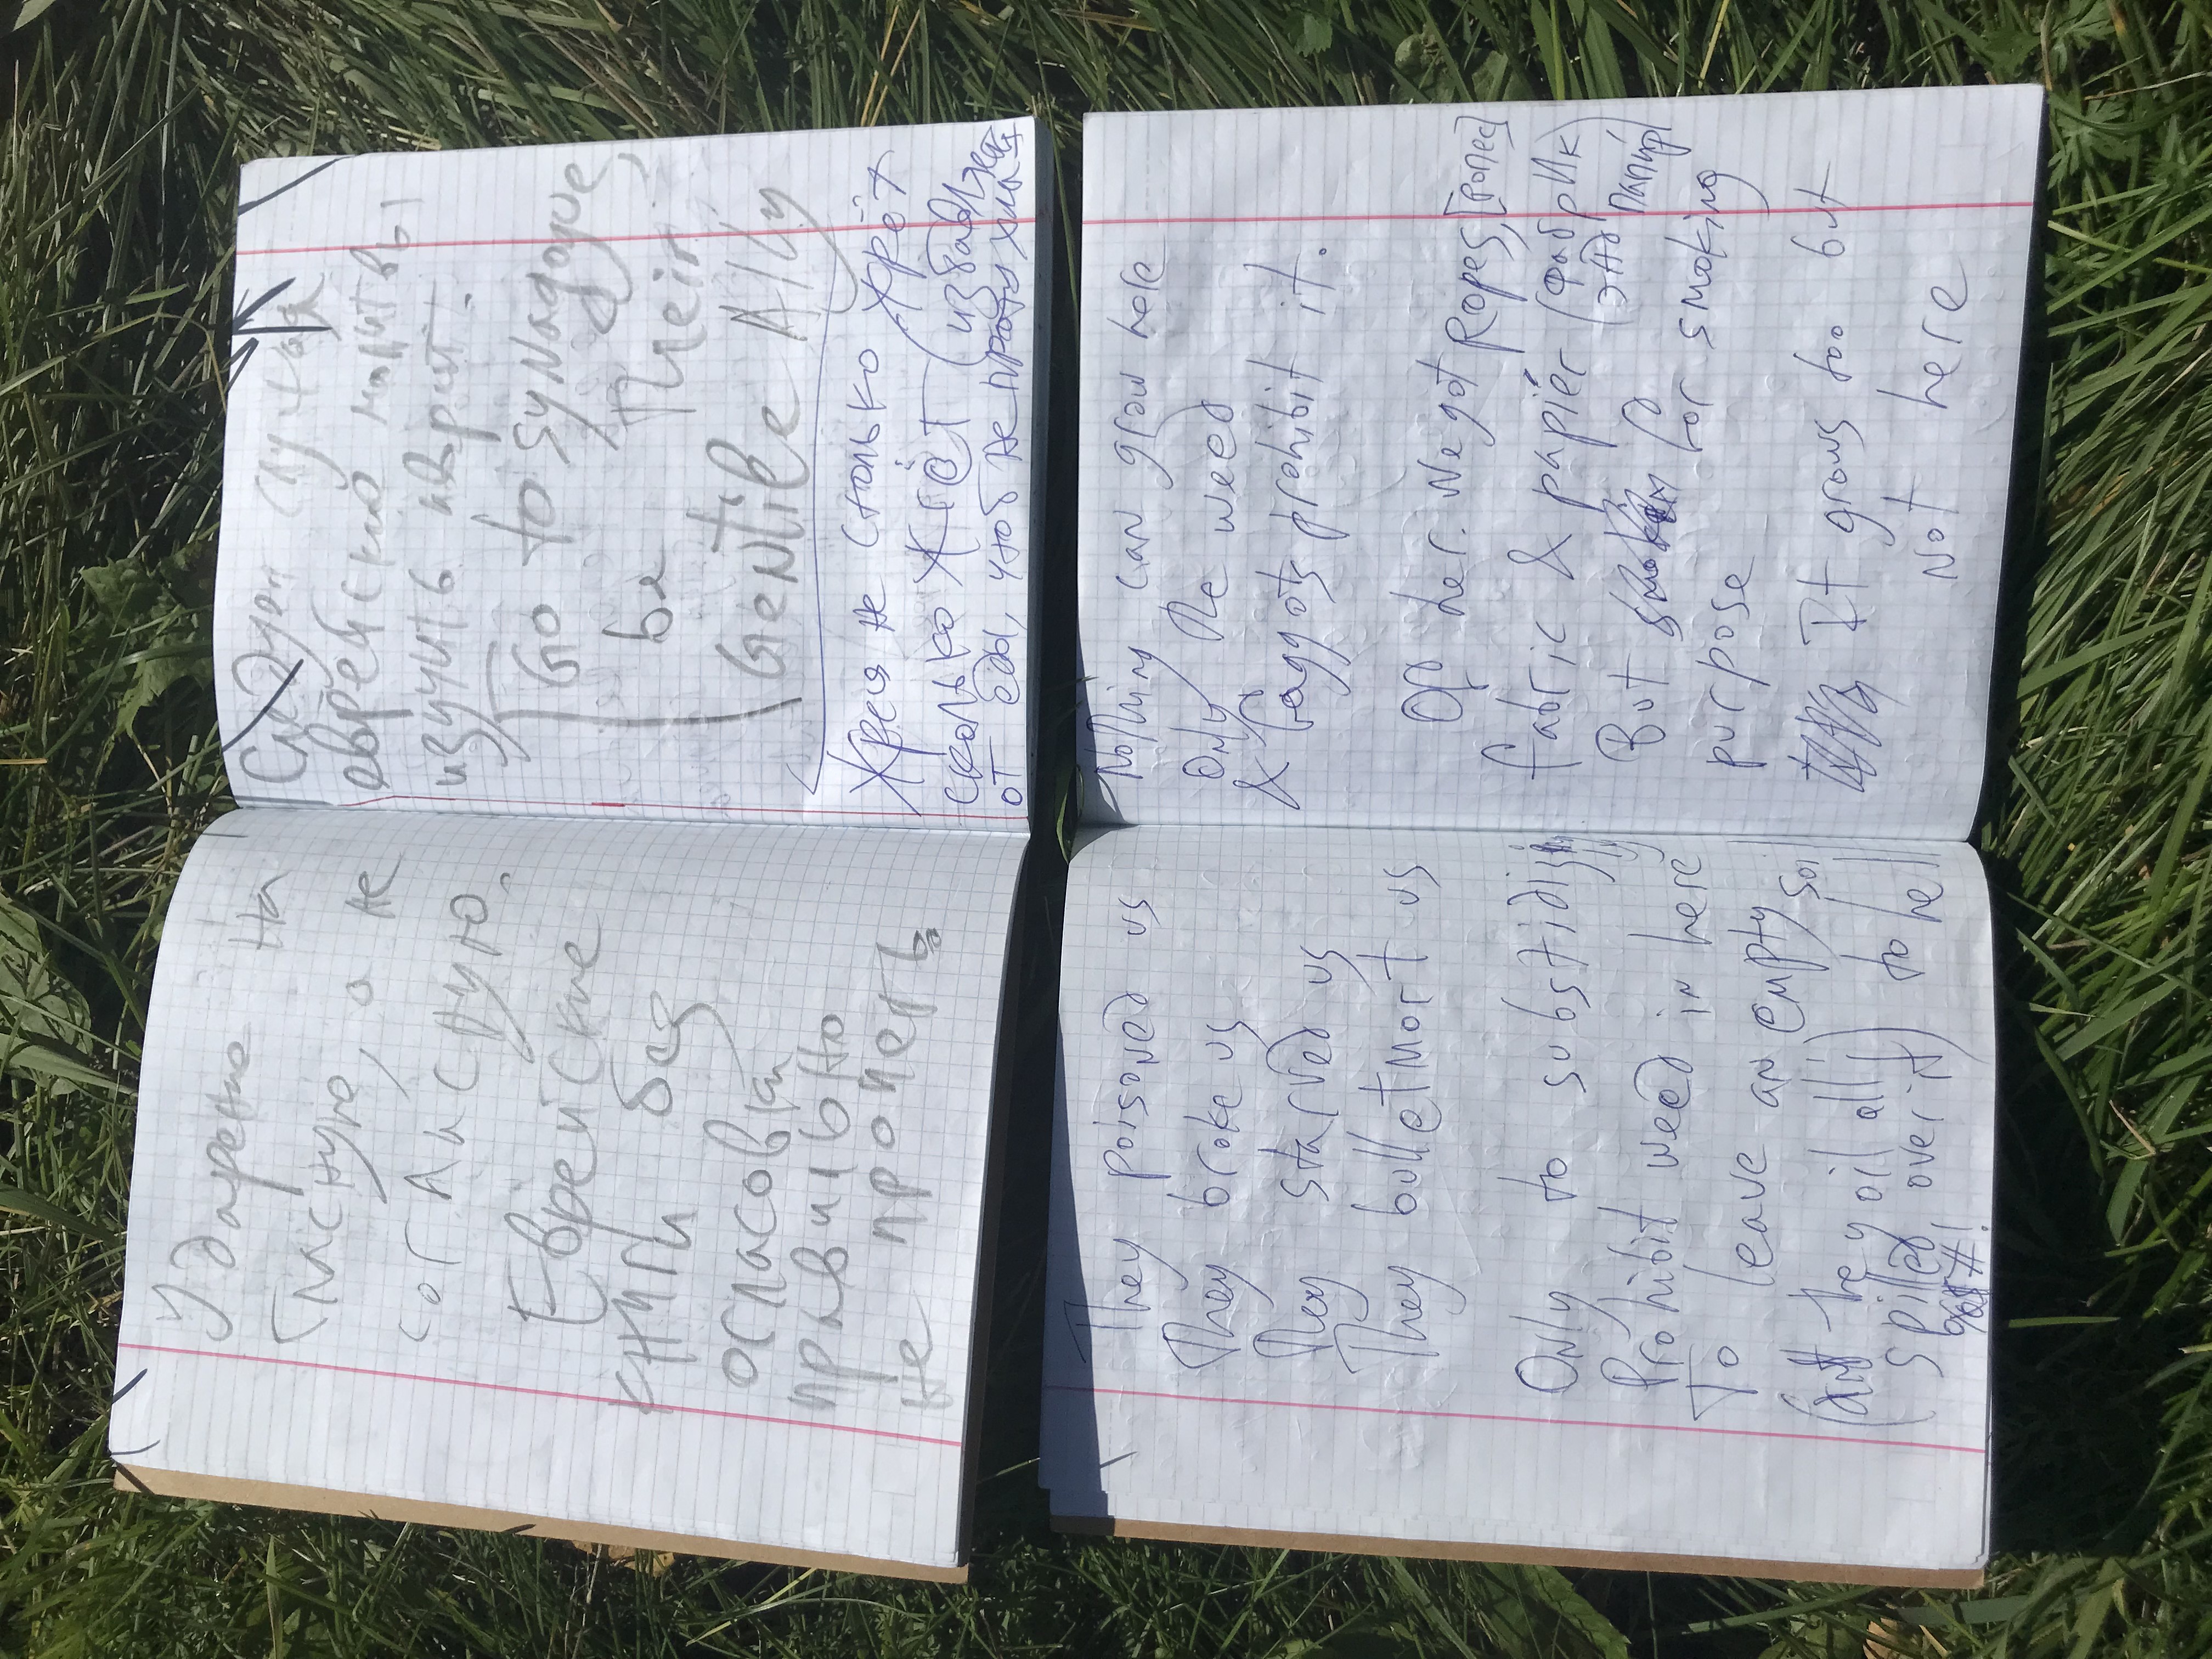 Ударение на
гласную, а не
согласную.
Еврейские
книги без
огласовки
правильно
не пропеть.
Следует слушая
еврейские молитвы
изучить иврит.
Go to synagogue,
be their
Gentile Ally
Жрец не столько жрёт
сколько жжёт (избавляет
от еды, чтоб не протухла
They poisoned us
They broke us
They starved us
They bulletmort us
Only to
Prohibit weed in here
To leave an empty
soil
(and they oil all
spilled over it) to hell
%$#!
Nothing can grow here
Only the weed
& faggots prohibit it.
Of her. We got Ropes, [ропес]
fabric & papiér (фабрИк
энд папир)
But for smoking
purpose
It grows too but
not here